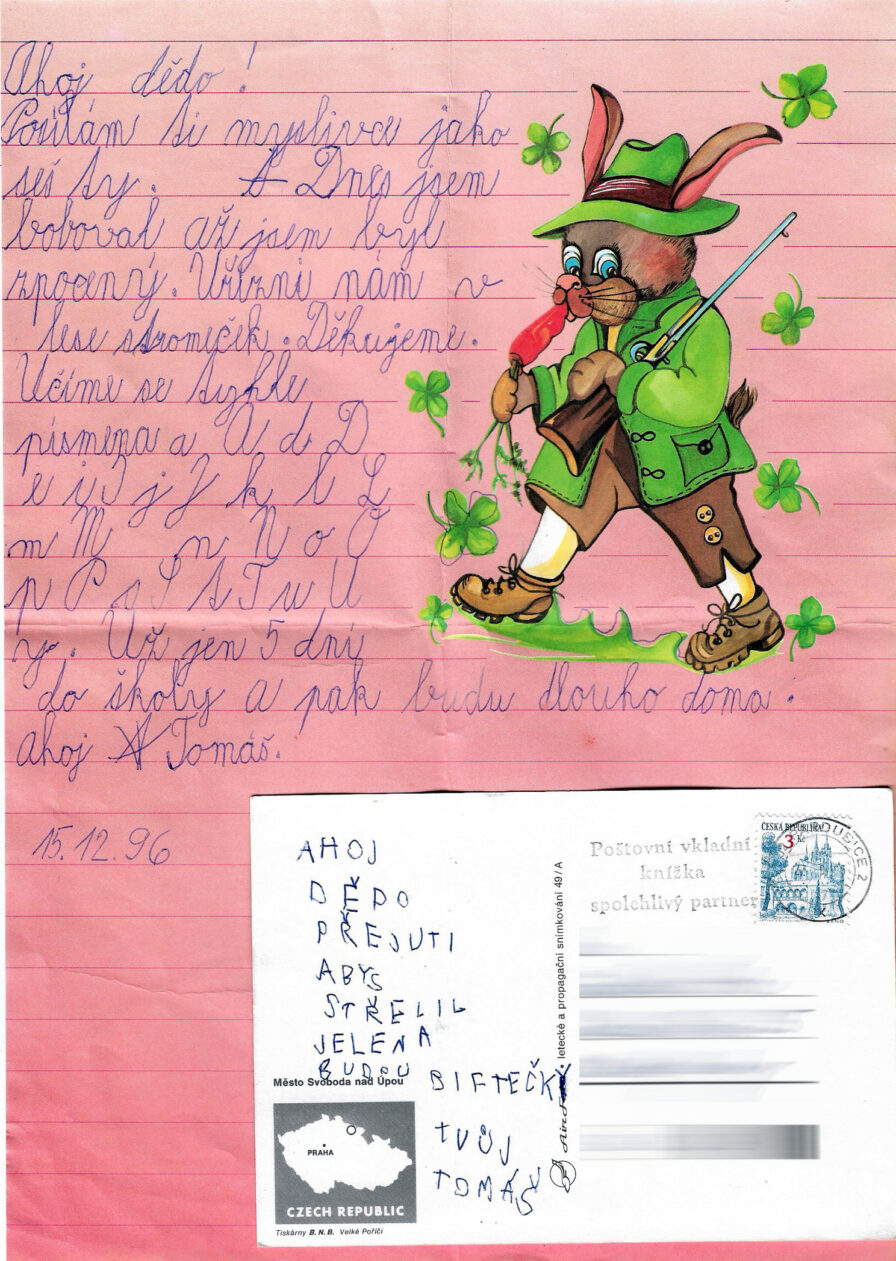 Ahoj dědo!
Posílám ti myslivce jako
seš ty. A Dnes jsem
boboval až jsem byl
zpocený. Uřízni nám v
lese stromeček. Děkujeme.
Učíme se tyhle
písmena a A d D
e i J j J k l L
m M n N o O
p P s S t T u U
y. Už jen 5 dní
do školy a pak budu dlouho doma.
ahoj A Tomáš.
15.12.96
AHOJ
DĚDO
PŘEJUTI
ABYS
STŘELIL
JELENA
BUDOU BIFTEČKY
TVŮJ
TOMÁŠ
Město Svoboda nad Úpou
PRAHA
CZECH REPUBLIC
Tiskárny B.N.B. Velké Poříčí
letecké a propagační snímkování 49/A
Poštovní vkladní
knížka
spolehlivý partner
ČESKÁ REPUBLIKA
3 Kč